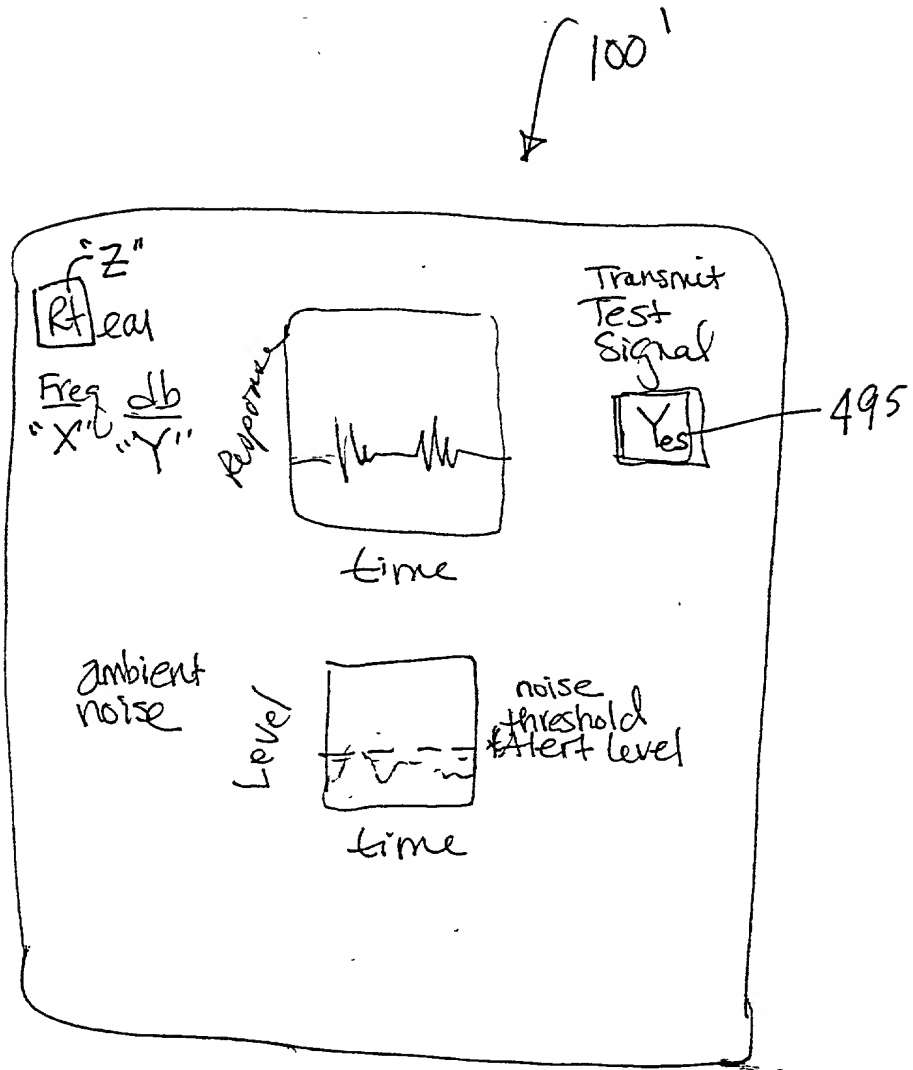 100'
"Z"
Rt ear
Freq db
"X" "Y"
Response
time
Transmit
Test
Signal
Yes
495
ambient
noise
Level
time
noise
threshold
*Alert level